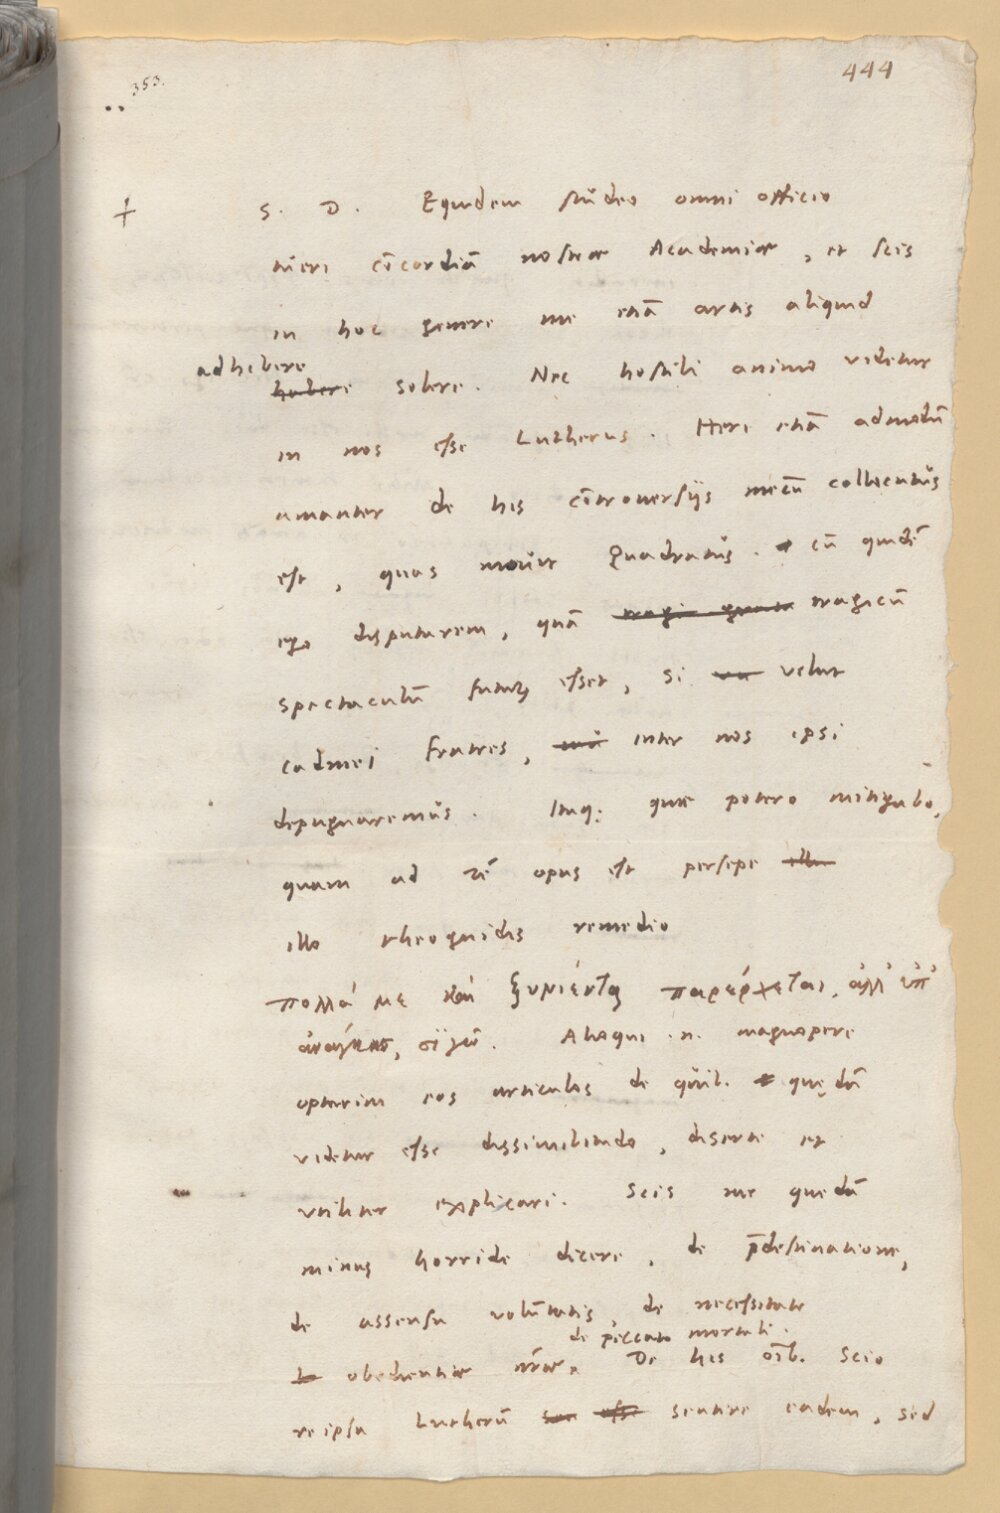 353.
444
+ S. D. Equidem studeo omni officio
tueri cōcordiā nostrae Academiae, et scis
in hoc genere me etiā artis aliquid
adhibere
habere solere. Nec hostili animo videtur
in nos esse Lutherus. Heri etiā admodū
amanter de his cōtroversijs mecū collocutus
est, quas movit Quadratus. cū quidē
ego disputarem, quā tragicū
spectaculū futurū esset, si velut
cadmei fratres, inter nos ipsi
depugnaremus. Itaq; quae potero mitigabo,
quam ad rē opus est persepe
illo theognidis remedio
πολλά με καὶ ξυνιέντα παρέρχεται, ἀλλ' ὑπ'
ἀνάγκης σιγῶ. Alioqui .n. magnopere
optarim eos articulos de quib. quędā
videtur esse dissimilitudo, diserte et
utiliter explicari. Scis me quedā
minus horride dicere, de p̄destinatione,
de assensu volūtatis, de necessitate
de peccato mortali.
obedientiae nr̄ae. De his oīb. Scio
reipsa Lutherū sentire eadem, sed